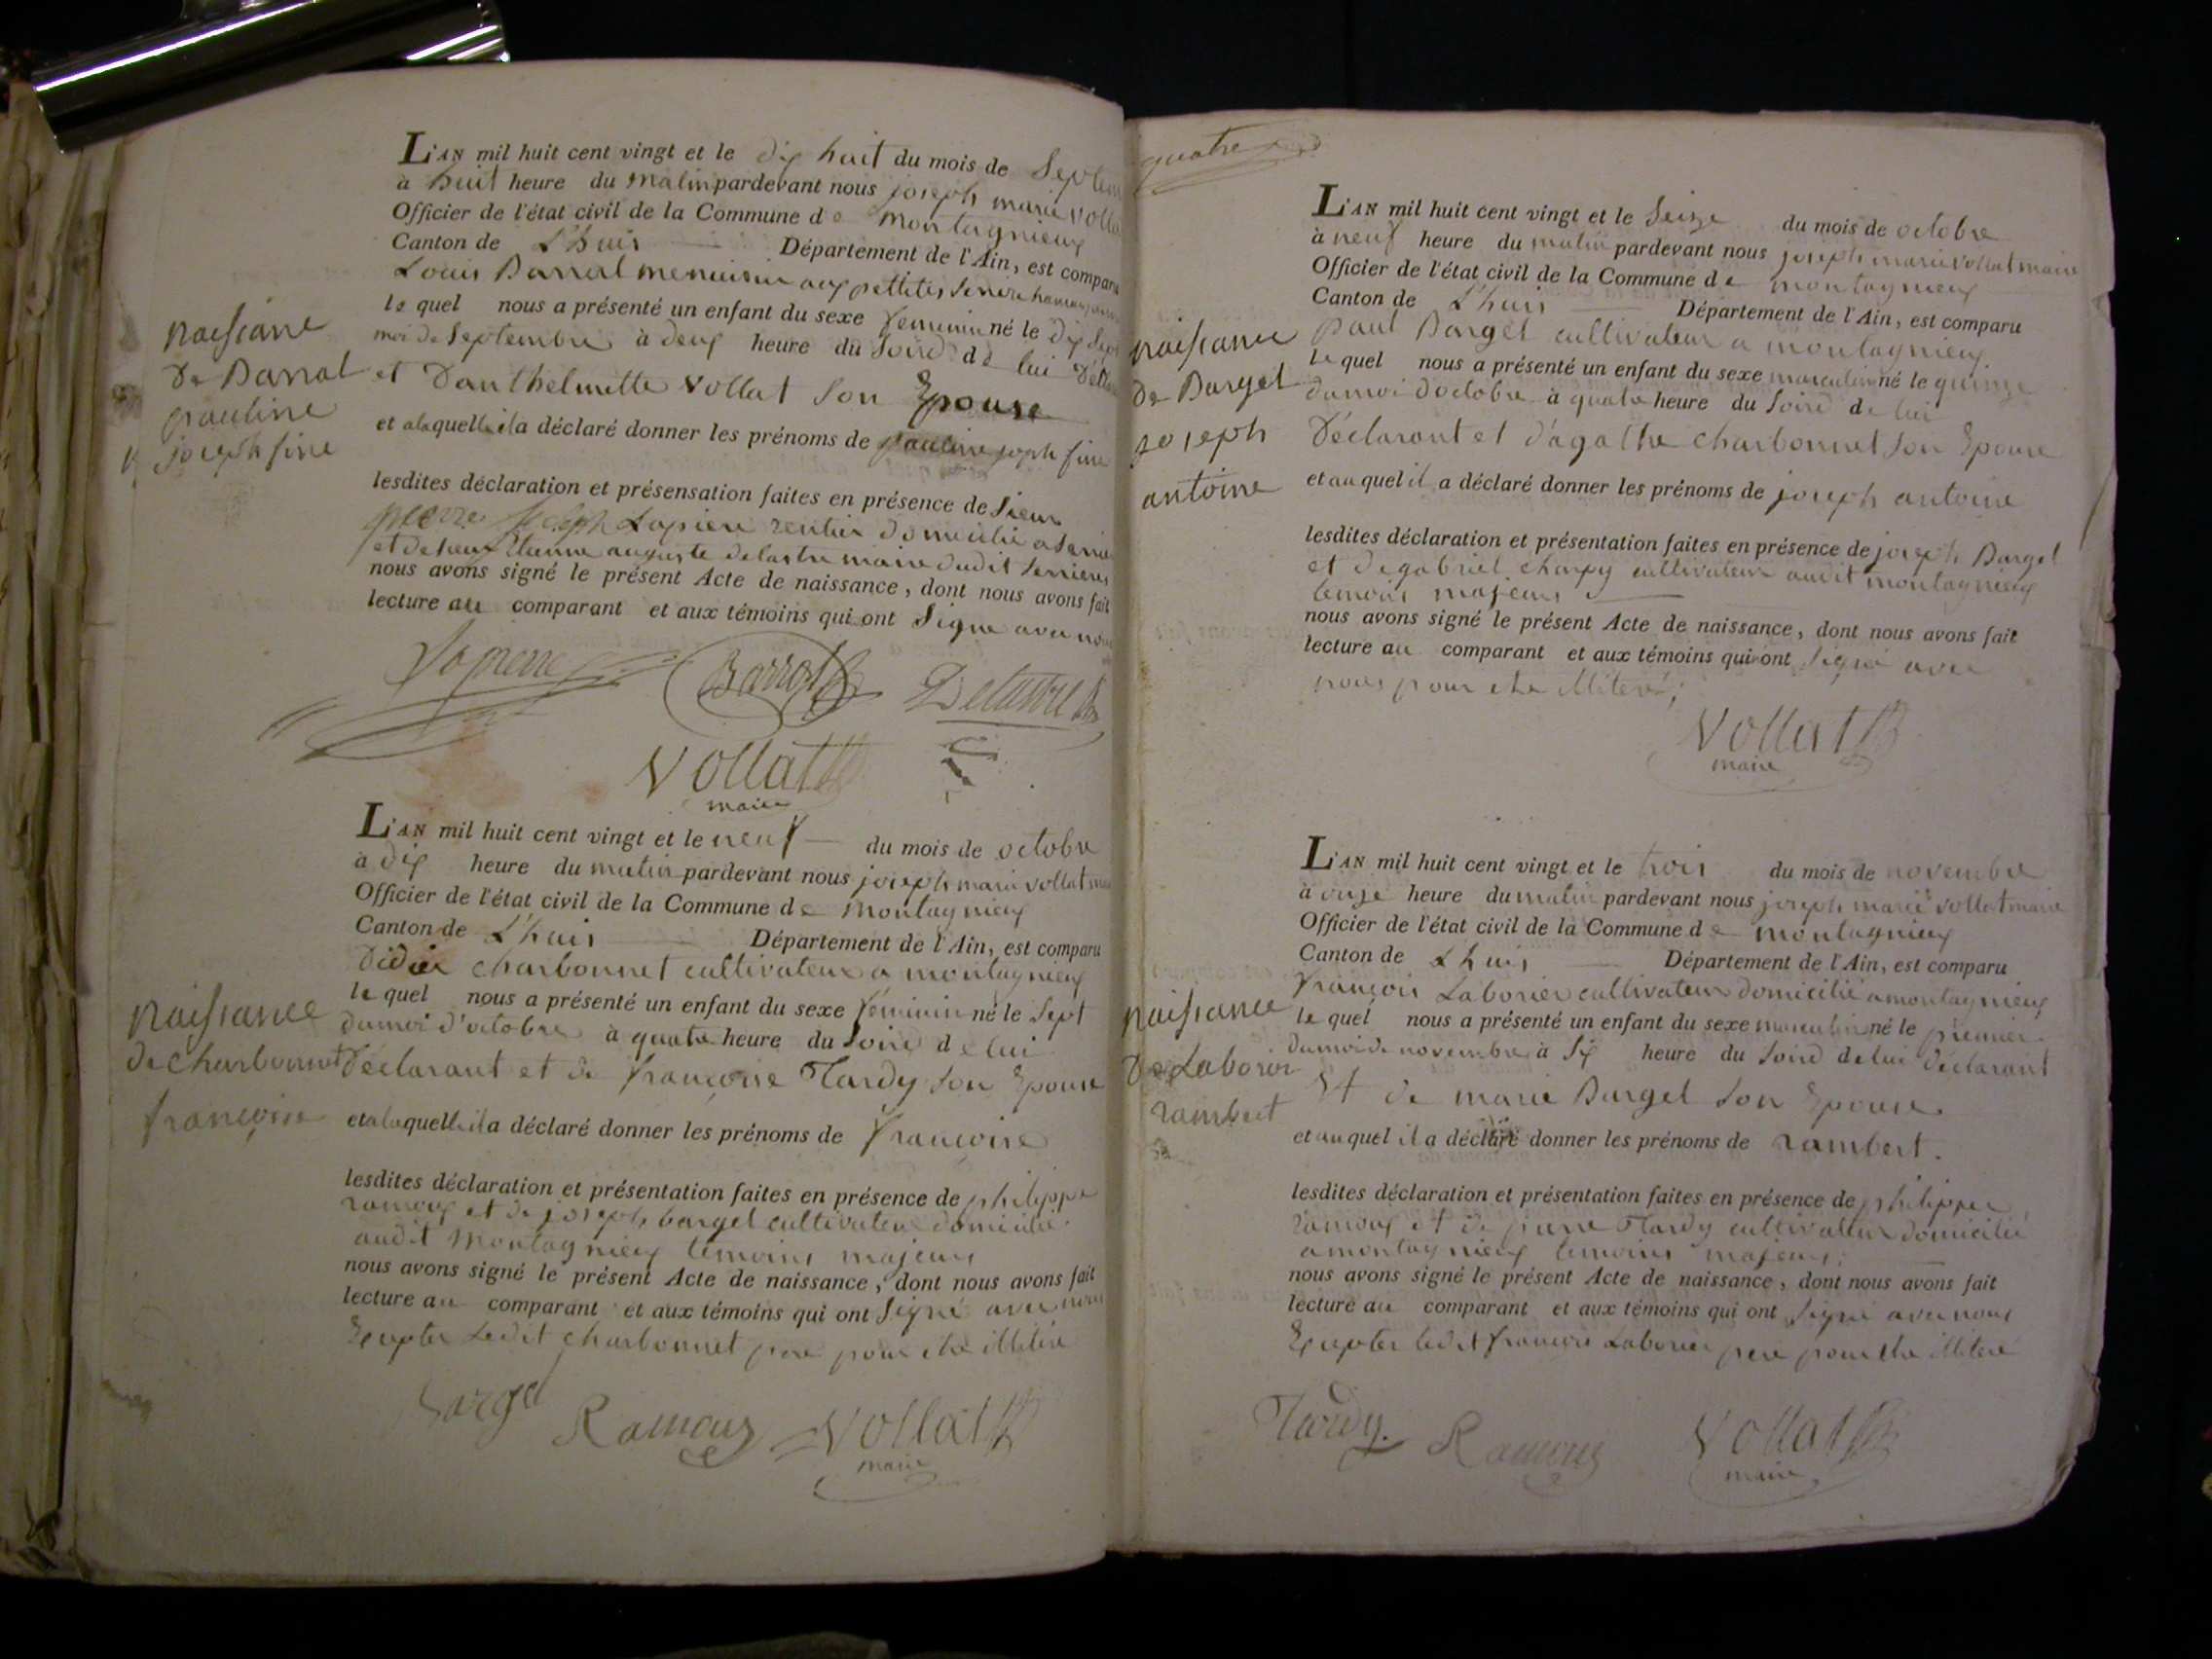 naissance
De Barral
pauline
joseph fine
L'AN mil huit cent vingt et le dix huit du mois de Septem
à huit heure du matin pardevant nous joseph marie Volla
Officier de l'état civil de la Commune de montagnieux
Canton de L'huis Département de l'Ain, est comparu
Louis Barral menuisier aux pettites
le quel nous a présenté un enfant du sexe feminin né le dix Sept
moi de Septembre à deux heure du Soire de lui
et Danthelmette Vollat Son Epouse
et alaquelle il a déclaré donner les prénoms de pauline joseph fine
lesdites déclaration et présensation faites en présence de Sieur
pierre joseph Lapierre rentier domicilié a
et de Sieur Etienne auguste delastre maire dudit Serrieres
nous avons signé le présent Acte de naissance, dont nous avons fait
lecture au comparant et aux témoins qui ont Signe avec nous
Lapierre Barral Delastre
Vollat
maire
naissance
de charbonnet
francoise
L'AN mil huit cent vingt et le neuf du mois de octobre
à dix heure du matin pardevant nous joseph marie vollat
Officier de l'état civil de la Commune de Montagnieux
Canton de L'huis Département de l'Ain, est comparu
Didier charbonnet cultivateur a montagnieux
le quel nous a présenté un enfant du sexe féminin né le Sept
dumoi d'octobre à quatre heure du Soire de lui
Déclarant et de francoise Tardy Son Epouse
et alaquelle il a déclaré donner les prénoms de francoise
lesdites déclaration et présentation faites en présence de philippe
ramoux et de joseph bargel cultivateur domicilié
audit Montagnieux témoins majeurs
nous avons signé le présent Acte de naissance, dont nous avons fait
lecture au comparant et aux témoins qui ont Signé avec nous
Excepter Ledit charbonnet pere pour etre
bargel Ramoux Vollat
maire
quatre
naissance
de Bargel
joseph
antoine
L'AN mil huit cent vingt et le Seize du mois de octobre
à neuf heure du matin pardevant nous joseph marie vollat maire
Officier de l'état civil de la Commune de montagnieux
Canton de L'huis Département de l'Ain, est comparu
paul Bargel cultivateur a montagnieux
le quel nous a présenté un enfant du sexe masculin né le quinze
dumoi doctobre à quatre heure du Soire de lui
Déclarant et d'agathe charbonnet Son Epouse
et au quel il a déclaré donner les prénoms de joseph antoine
lesdites déclaration et présentation faites en présence de joseph Bargel
et de gabriel charpy cultivateur audit montagnieux
temoins majeurs
nous avons signé le présent Acte de naissance, dont nous avons fait
lecture au comparant et aux témoins qui ont Signé avec
nous pour etre
Vollat
maire
naissance
De Laborier
rambert
L'AN mil huit cent vingt et le trois du mois de novembre
à onze heure du matin pardevant nous joseph marie vollat maire
Officier de l'état civil de la Commune de montagnieux
Canton de Lhuis Département de l'Ain, est comparu
françois Laborier cultivateur domicilié amontagnieux
le quel nous a présenté un enfant du sexe masculin né le premier
dumoi de novembre à Six heure du Soire de lui déclarant
Et de marie Bargel Son Epouse
et au quel il a déclaré donner les prénoms de rambert.
lesdites déclaration et présentation faites en présence de philippe
ramoux et de pierre Tardy cultivateur domicilié
amontagnieux temoins majeurs
nous avons signé le présent Acte de naissance, dont nous avons fait
lecture au comparant et aux témoins qui ont Signé avec nous
Excepter ledit francois Laborier pere pour etre
Tardy. Ramoux Vollat
maire